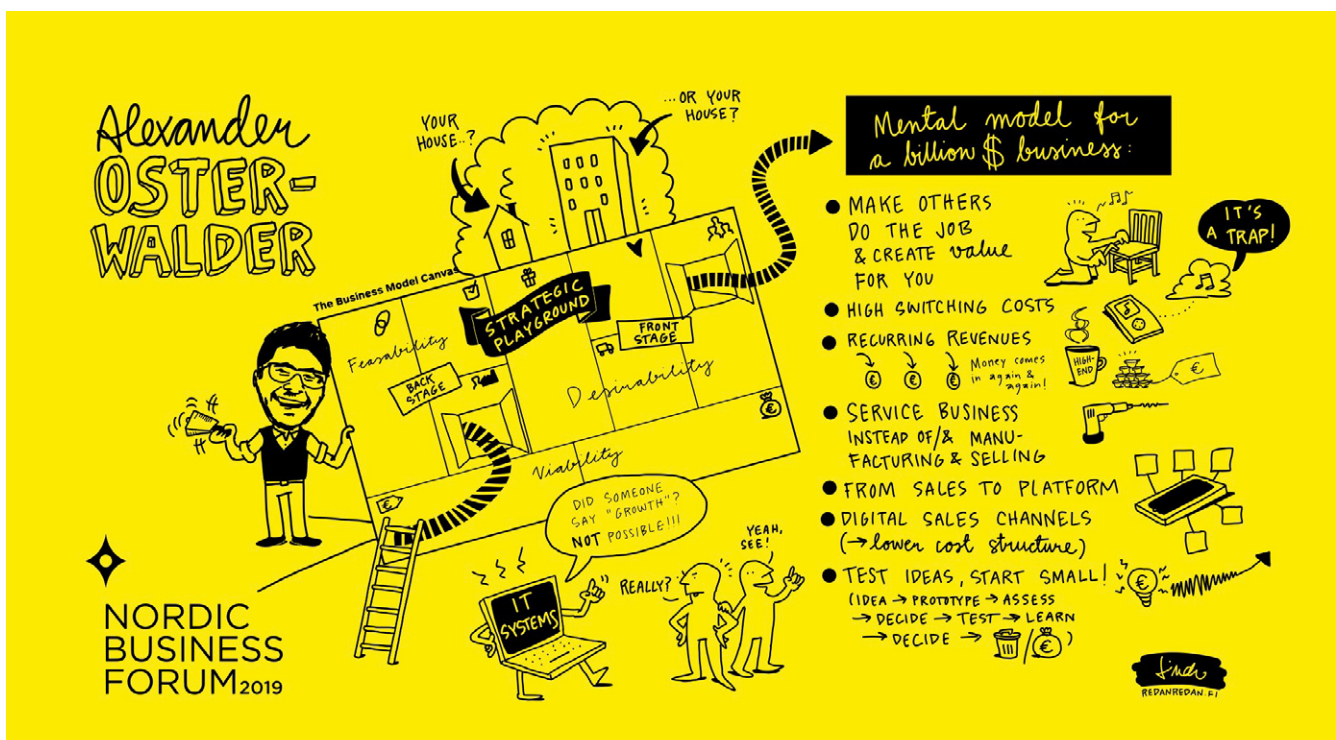 Alexander
OSTER-
WALDER
YOUR
HOUSE..?
...OR YOUR
HOUSE?
The Business Model Canvas
STRATEGIC
PLAYGROUND
Feasability
BACK
STAGE
FRONT
STAGE
Desirability
Viability
DID SOMEONE
SAY "GROWTH"?
NOT POSSIBLE!!!
IT
SYSTEMS
REALLY?
YEAH,
SEE!
NORDIC
BUSINESS
FORUM 2019
Mental model for
a billion $ business:
● MAKE OTHERS
DO THE JOB
& CREATE value
FOR YOU
IT'S
A TRAP!
● HIGH SWITCHING COSTS
● RECURRING REVENUES
€ € €
Money comes
in again &
again!
HIGH-
END
€
● SERVICE BUSINESS
INSTEAD OF/& MANU-
FACTURING & SELLING
● FROM SALES TO PLATFORM
● DIGITAL SALES CHANNELS
(→ lower cost structure)
● TEST IDEAS, START SMALL!
(IDEA → PROTOTYPE → ASSESS
→ DECIDE → TEST → LEARN
→ DECIDE → / € )
REDANREDAN.FI